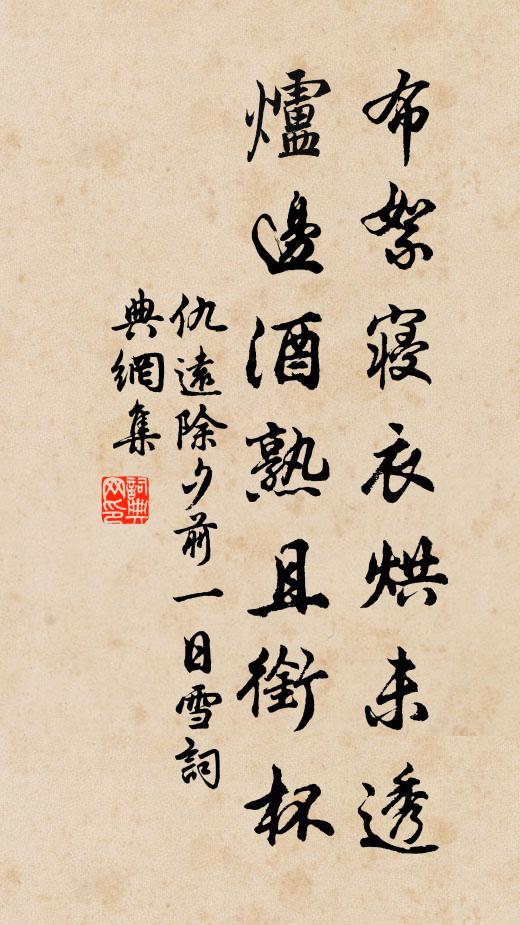 布絮寝衣烘未透
爐邊酒熟且銜杯
仇遠除夕前一日雪詞
典網集
詞典網印